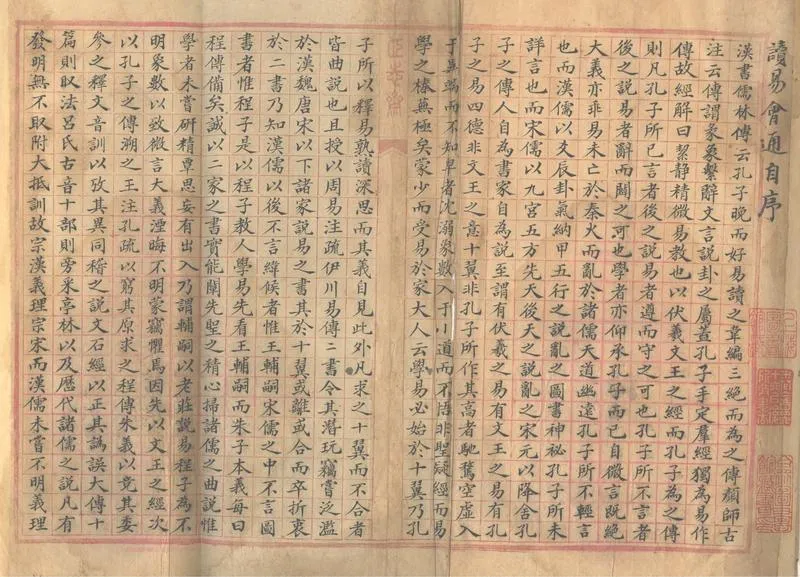 讀易會通自序
漢書儒林傳云孔子晚而好易讀之韋編三絶而為之傳顏師古
注云傳謂彖象繫辭文言說卦之屬蓋孔子手定羣經獨為易作
傳故經解曰絜靜精微易教也以伏羲文王之經而孔子為之傳
則凡孔子所已言者後之說易者遵而守之可也孔子所不言者
後之說易者辭而闢之可也學者亦仰承孔子而已自微言既絶
大義亦乖易未亡於秦火而亂於諸儒天道幽遠孔子所不輕言
也而漢儒以爻辰卦氣納甲五行之說亂之圖書神秘孔子所未
詳言也而宋儒以九宮五方先天後天之說亂之宋元以降舍孔
子之傳人自為書家自為說至謂有伏羲之易有文王之易有孔
子之易四德非文王之意十翼非孔子所作其高者馳騖空虛入
于異端而不知卑者沈溺象數入于小道而不悟非聖疑經而易
學之榛蕪極矣蒙少而受易於家大人云學易必始於十翼乃孔
子所以釋易熟讀深思而其義自見此外凡求之十翼而不合者
皆曲說也且授以周易注疏伊川易傳二書令其潛玩竊嘗泛濫
於漢魏唐宋以下諸家說易之書其於十翼或離或合而卒折衷
於二書乃知漢儒以後不言緯候者惟王輔嗣宋儒之中不言圖
書者惟程子是以程子教人學易先看王輔嗣而朱子本義每曰
程傳備矣誠以二家之書實能闡先聖之精心掃諸儒之曲說惟
學者未嘗研精覃思妄有出入乃謂輔嗣以老莊說易程子為不
明象數以致微言大義湮晦不明蒙竊懼焉因先以文王之經次
以孔子之傳溯之王注孔疏以窮其原求之程傳朱義以竟其委
參之釋文音訓以攷其異同稽之說文石經以正其譌誤大傳十
篇則取法呂氏古音十部則旁采亭林以及歷代諸儒之說凡有
發明無不取附大抵訓故宗漢義理宗宋而漢儒未嘗不明義理